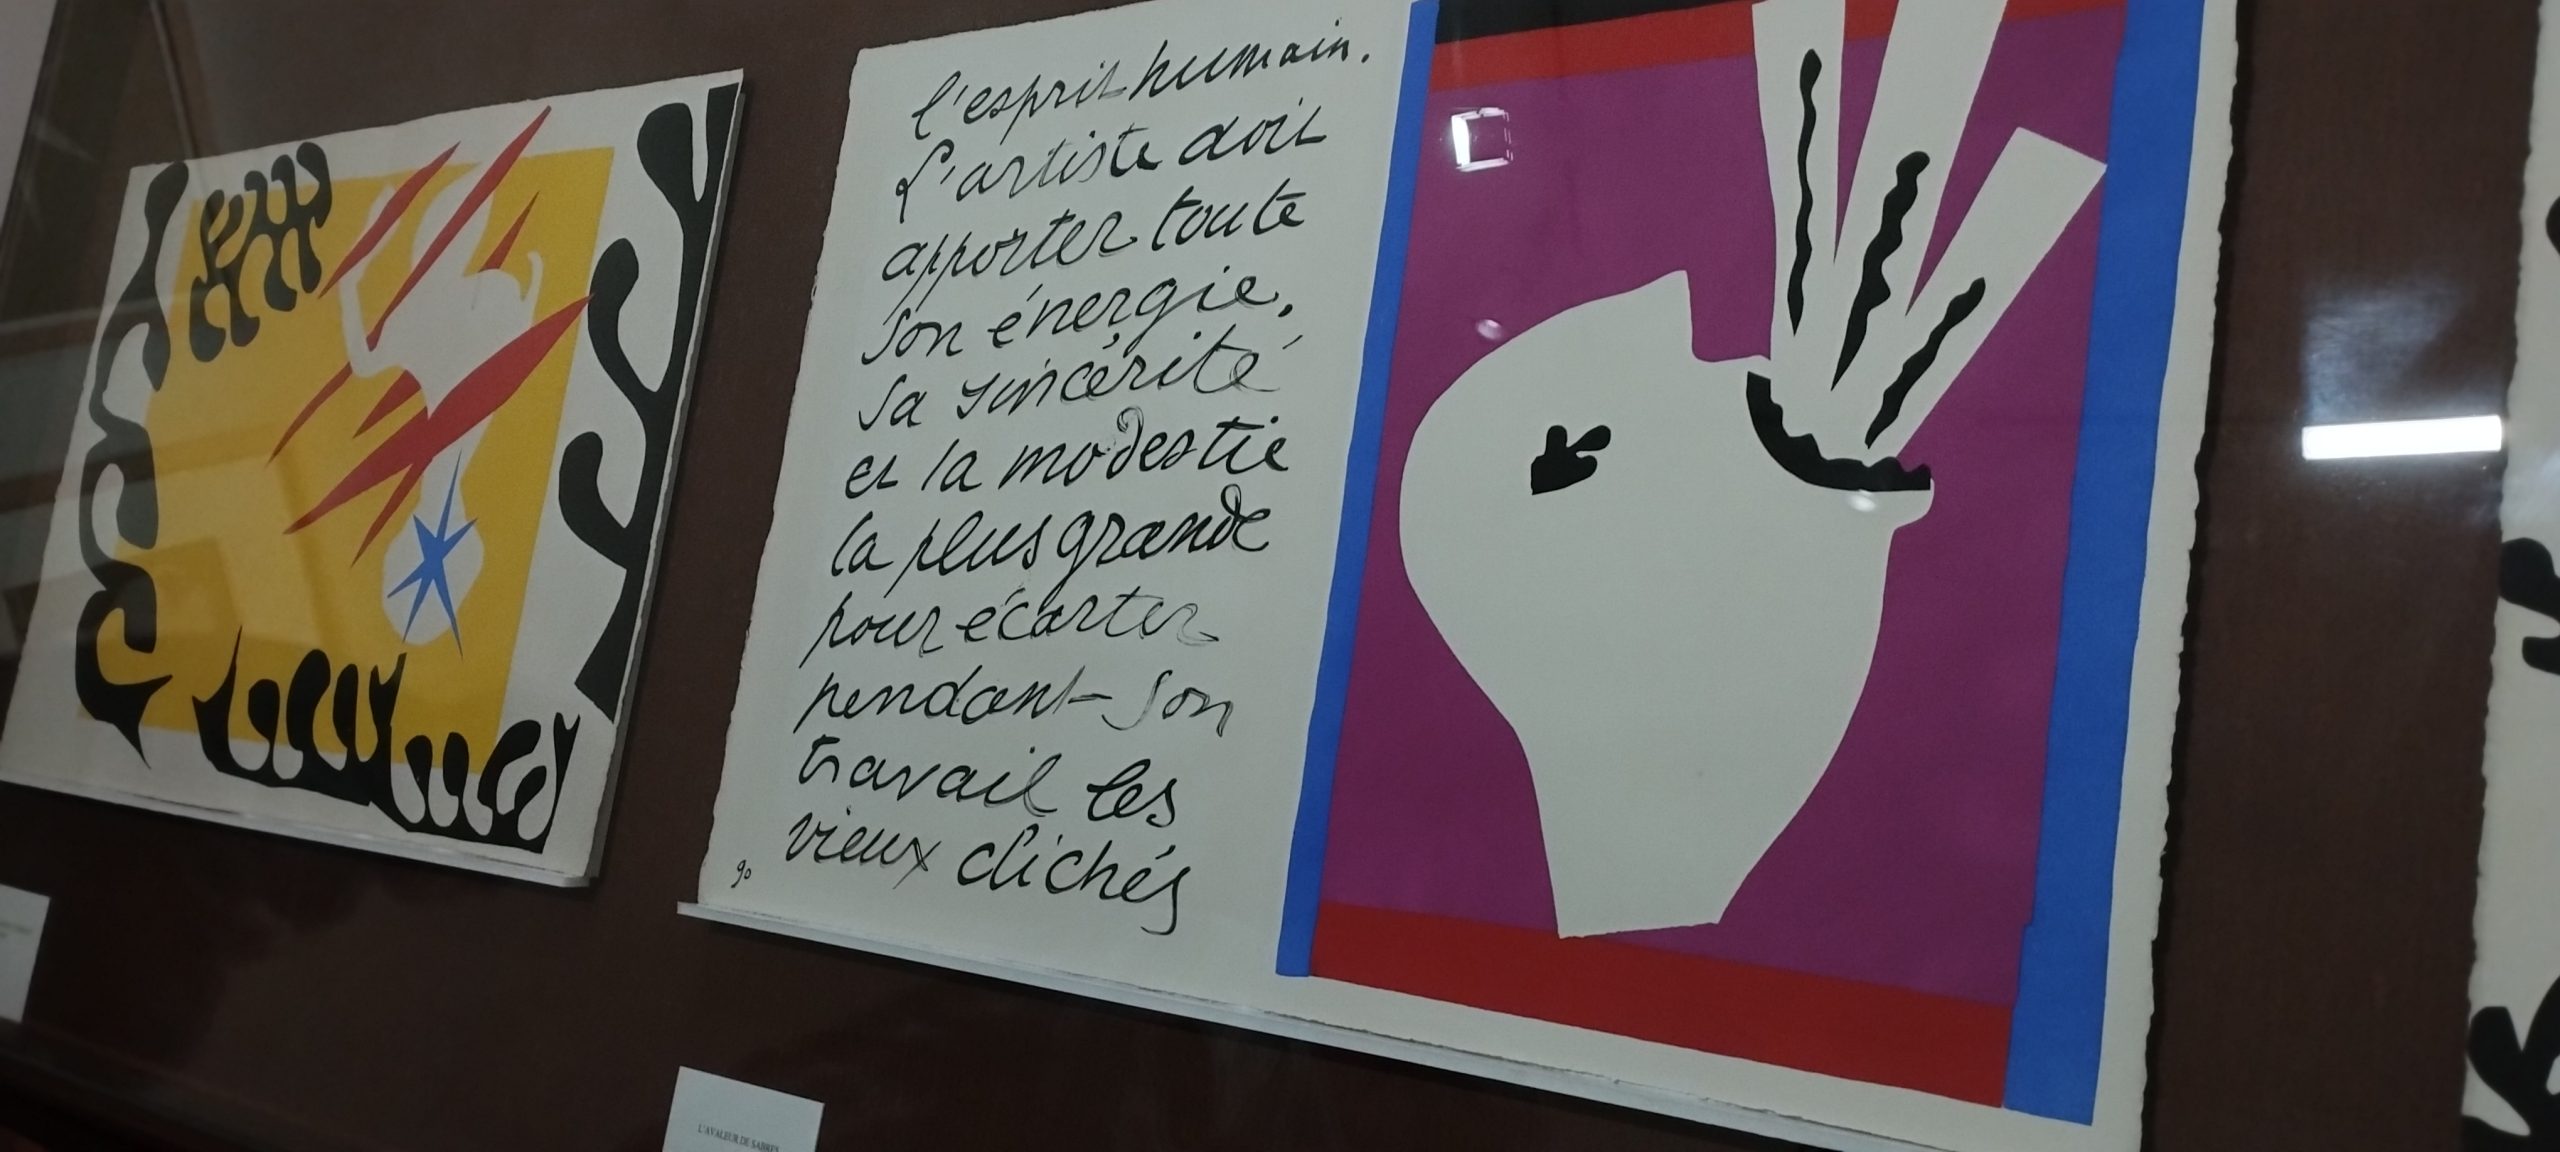 l'esprit humain.
L'artiste doit
apporter toute
son énergie,
sa sincérité
et la modestie
la plus grande
pour écarter
pendant son
travail les
vieux clichés
90
L'AVALEUR DE SABRES